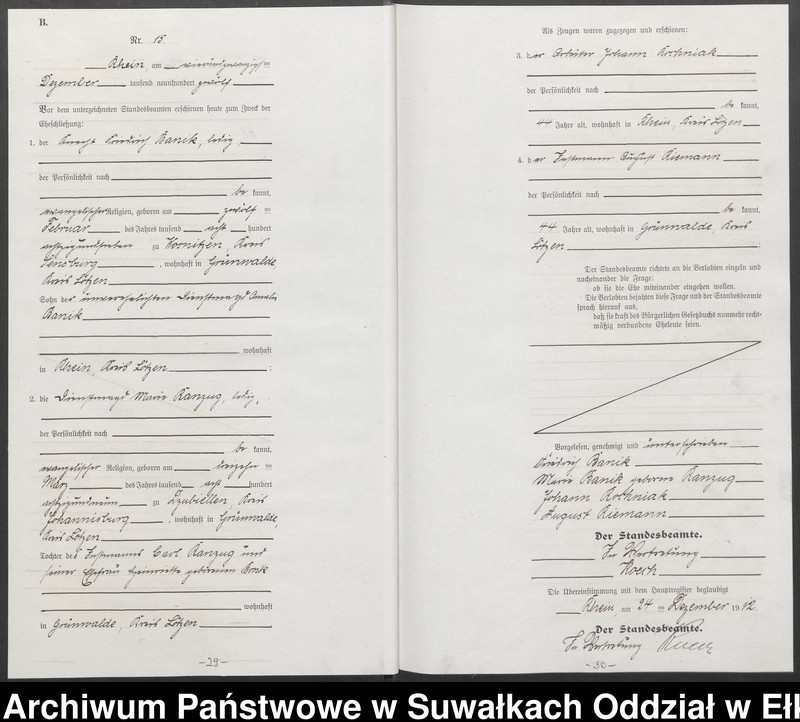 B.
Nr. 15
Rhein, am vierundzwanzigsten
Dezember tausend neunhundert zwölf
Vor dem unterzeichneten Standesbeamten erschienen heute zum Zweck der
Eheschließung:
1. der Knecht Friedrich Banik, ledig,
der Persönlichkeit nach
be kannt,
evangelischer Religion, geboren am zwölften
Februar des Jahres tausend acht hundert
achtzigundsieben zu Kreis
Sensburg, wohnhaft in Grünwalde,
Kreis Lötzen
Sohn der unverehelichten Dienstmagd Amalie
Banik
wohnhaft
in Rhein, Kreis Lötzen;
2. die Dienstmagd Marie Kanzug, ledig,
der Persönlichkeit nach
be kannt,
evangelischer Religion, geboren am
März des Jahres tausend acht hundert
achtzigundneun zu Dziubiellen, Kreis
Johannisburg, wohnhaft in Grünwalde,
Kreis Lötzen
Tochter des Instmanns Carl Kanzug und
seiner Ehefrau Henriette geborenen
wohnhaft
in Grünwalde, Kreis Lötzen
-29-
Als Zeugen waren zugezogen und erschienen:
3. der Arbeiter Johann Rochniak
der Persönlichkeit nach
be kannt,
44 Jahre alt, wohnhaft in Rhein, Kreis Lötzen
4. der Instmann August Riemann
der Persönlichkeit nach
be kannt,
44 Jahre alt, wohnhaft in Grünwalde, Kreis
Lötzen;
Der Standesbeamte richtete an die Verlobten einzeln und
nacheinander die Frage:
ob sie die Ehe miteinander eingehen wollen.
Die Verlobten bejahten diese Frage und der Standesbeamte
sprach hierauf aus,
daß sie kraft des Bürgerlichen Gesetzbuchs nunmehr recht-
mäßig verbundene Eheleute seien.
Vorgelesen, genehmigt und unterschrieben
Friedrich Banik
Marie Banik geborene Kanzug
Johann Rochniak
August Riemann
Der Standesbeamte.
In Vertretung
Koech
Die Übereinstimmung mit dem Hauptregister beglaubigt
Rhein, am 24 ten Dezember 1912.
Der Standesbeamte.
In Vertretung
-30-
Archiwum Państwowe w Suwałkach Oddział w Eł